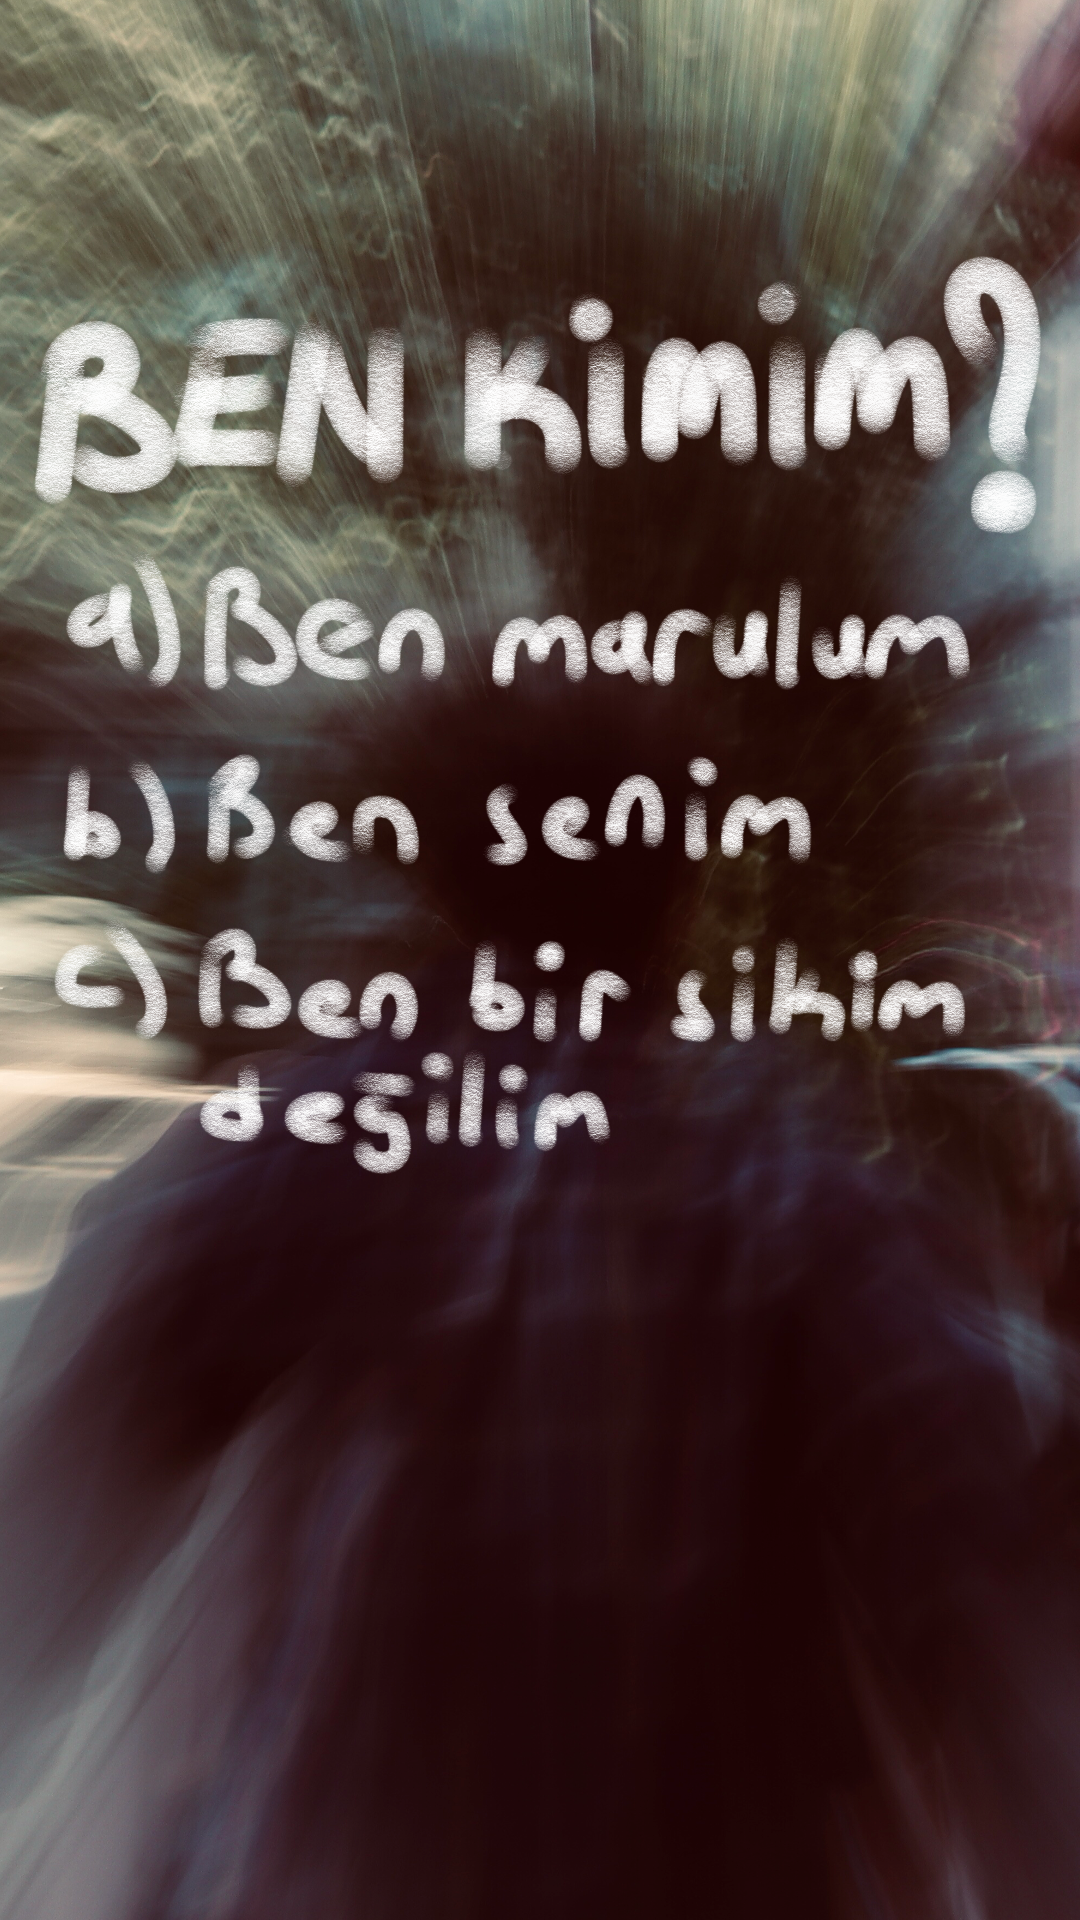 BEN Kimim?
a) Ben marulum
b) Ben senim
c) Ben bir sikim
değilim